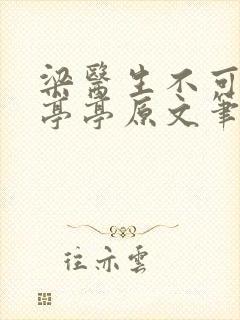 梁醫生不可
亭亭原文筆
往亦雲